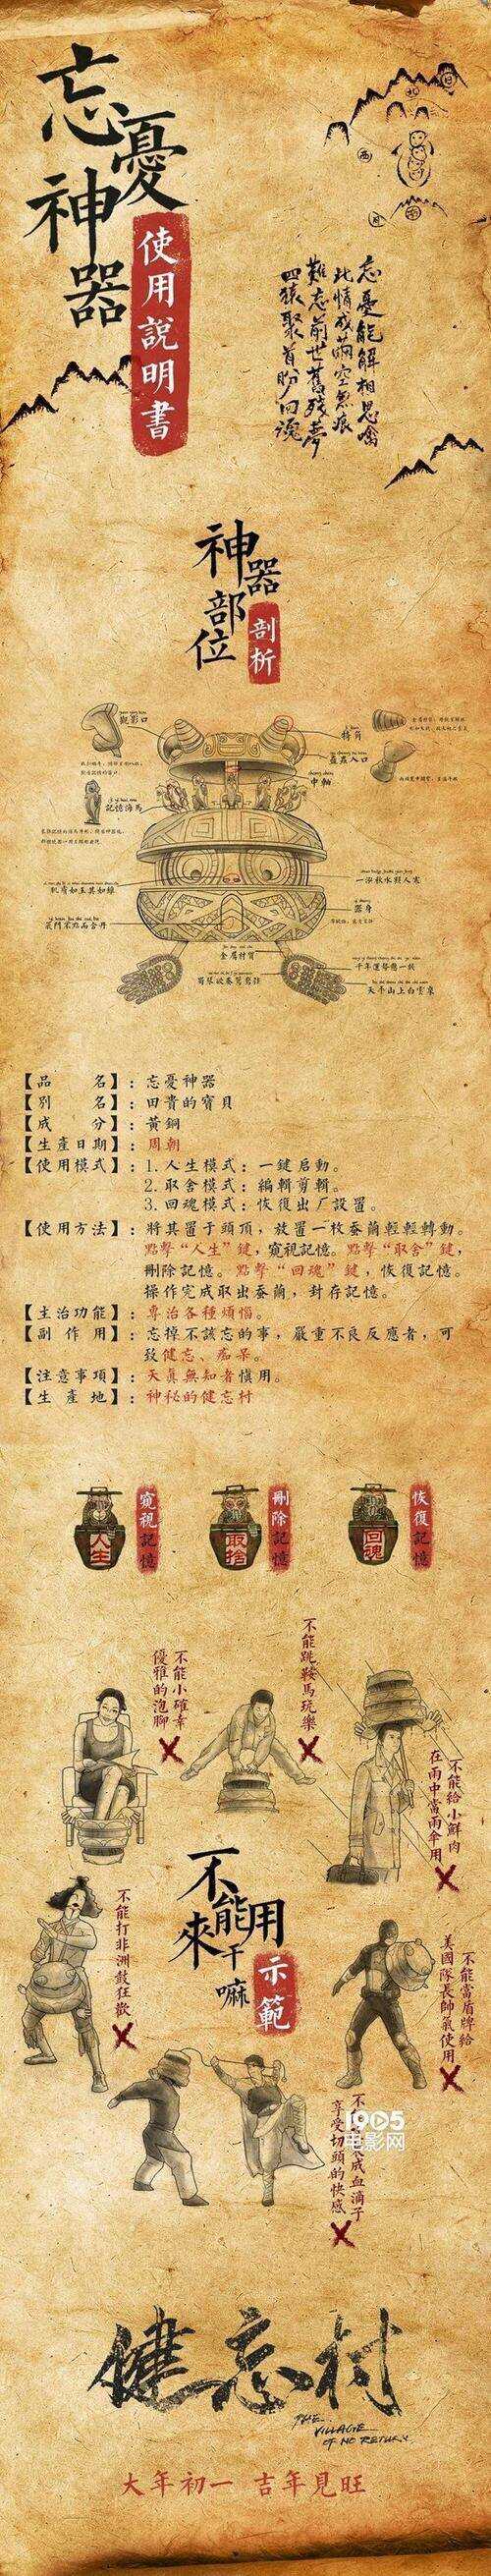 忘憂
神器
使用說明書
忘憂能解相思禽
此情成繭空無痕
難忘前世舊殘夢
四猿聚首盼回魂
神器
部位
剖析
觀影口
犄角
蠶蟲入口
中軸
記憶海馬
一泓秋水照人寒
器身
金屬材質
千年運勢懸一線
天平山上白雲泉
【品名】：忘憂神器
【別名】：田貴的寶貝
【成分】：黃銅
【生產日期】：周朝
【使用模式】：1.人生模式：一鍵启動。
2.取舍模式：編輯剪輯。
3.回魂模式：恢復出厂設置。
【使用方法】：將其置于頭頂，放置一枚蚕繭輕輕轉動。
點擊“人生”鍵，窺視記憶。點擊“取舍”鍵，
刪除記憶。點擊“回魂”鍵，恢復記憶。
操作完成取出蚕繭，封存記憶。
【主治功能】：專治各種煩惱。
【副作用】：忘掉不該忘的事，嚴重不良反應者，可
致健忘、痴呆。
【注意事項】：天真無知者慎用。
【生產地】：神秘的健忘村
人生
窺視記憶
取捨
刪除記憶
回魂
恢復記憶
不能小確幸
優雅的泡腳
不能跳鞍馬玩樂
不能給小鮮肉
在雨中當雨傘用
不能用
來干嘛
示範
不能打非洲鼓狂歡
不能當盾牌給
美國隊長帥氣使用
成血滴子
享受切頭的快感
1905
电影网
健忘村
THE
VILLAGE
OF NO RETURN
大年初一 吉年見旺